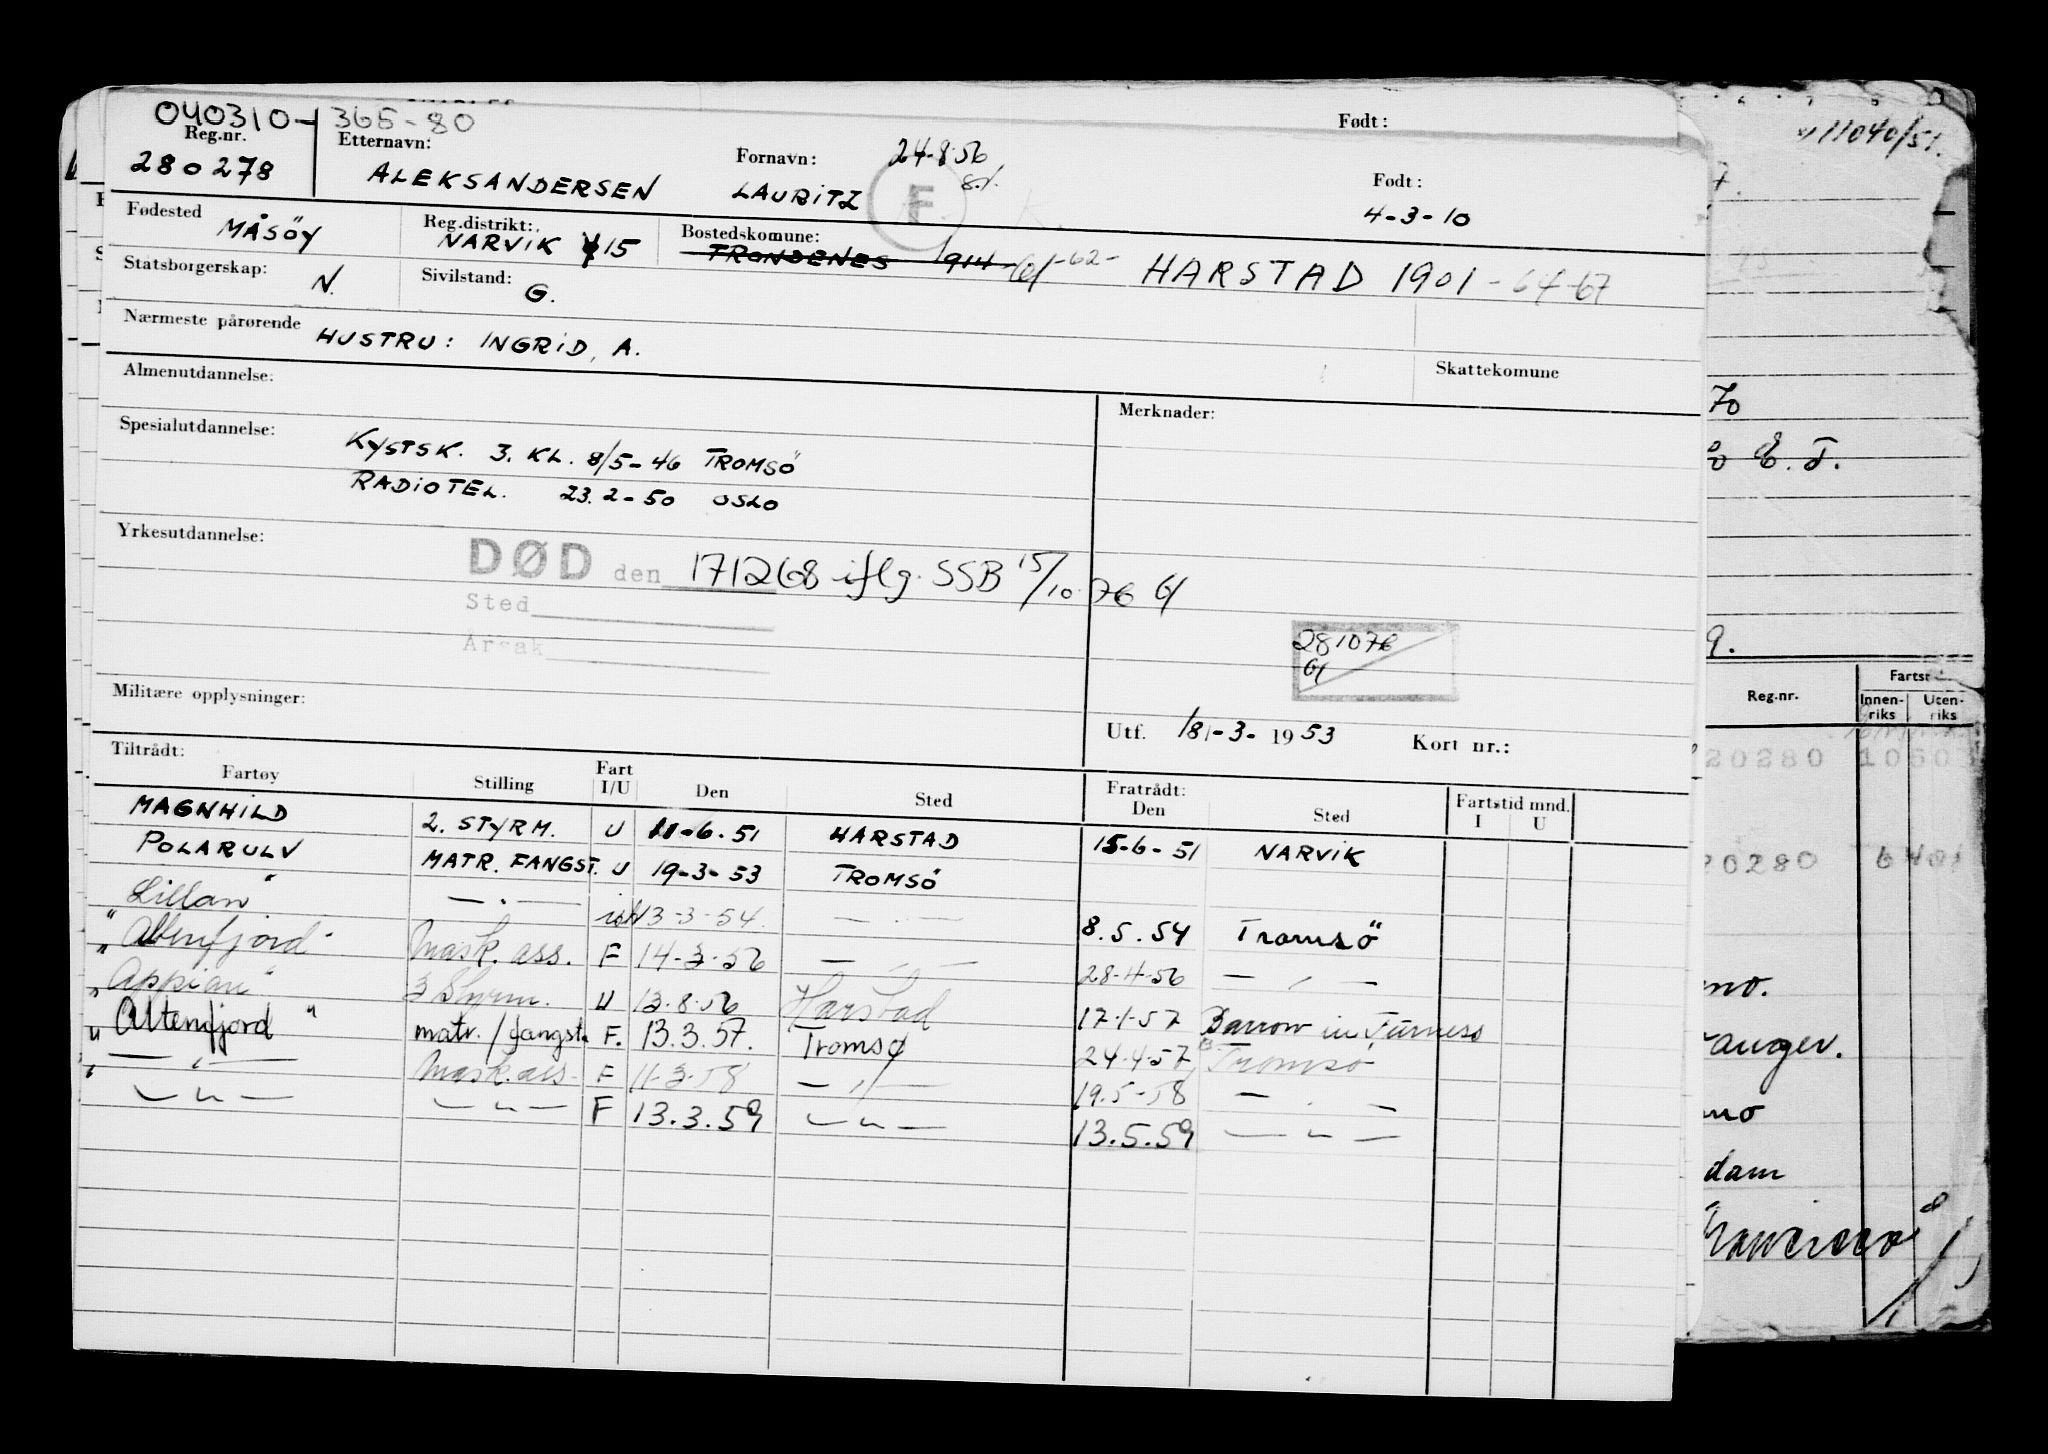 040310-365-80
Født:
Reg.nr. Etternavn: Fornavn: 24-8-56 Født:
280278 ALEKSANDERSEN LAURITZ F 4-3-10
Fødested MÅSÖY Reg.distrikt: NARVIK 15 Bostedskomune: TRONDENES 1914 -62- HARSTAD 1901 - 64-67
Statsborgerskap: N. Sivilstand: G.
Nærmeste pårørende HUSTRU: INGRID, A.
Skattekomune
Almenutdannelse: Merknader:
Spesialutdannelse: KYSTSK. 3. KL. 8/5-46 TROMSÖ
RADIOTEL. 23.2-50 OSLO
Yrkesutdannelse:
DØD den 171268 iflg. SSB 15/10 76
Sted
Årsak
281076
Militære opplysninger:
Utf. 18-3-1953 Kort nr.:
Tiltrådt: Fratrådt:
Fartøy Stilling Fart I/U Den Sted Den Sted Fartstid mnd. I U
MAGNHILD 2. STYRM. U 11-6-51 HARSTAD 15-6-51 NARVIK
POLARULV MATR. FANGST. U 19-3-53 TROMSÖ
Lillan" — " — 13-3-54 — " — 8.5.54 Tromsö
"Altenfjord" Mask. ass. F 14-3-56 — " — 28-4-56 — " —
"Appian" 3 Styrm. U 13-8-56 Harstad 17-1-57 Barrow in Furness
"Altenfjord" matr./fangst. F. 13.3.57. Tromsø 24-4-57 Tromsø
— " — Mask.ass. F 11-3-58 — " — 19.5-58 — " —
— " — — " — F 13.3.59 — " — 13.5.59 — " —
11040/51.
70
E. T.
9.
Reg.nr. Innen-riks Uten-riks
20280
20280
dam